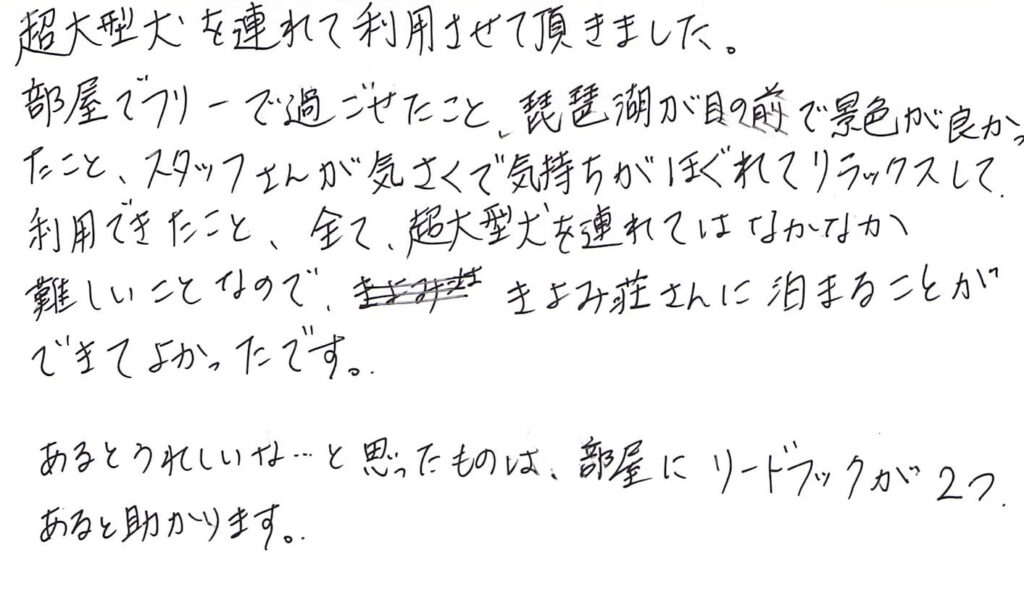 超大型犬を連れて利用させて頂きました。
部屋でフリーで過ごせたこと、琵琶湖が目の前で景色が良かっ
たこと、スタッフさんが気さくで気持ちがほぐれてリラックスして
利用できたこと、全て、超大型犬を連れてはなかなか
難しいことなので、きよみ荘さんに泊まることが
できてよかったです。
あるとうれしいな…と思ったものは、部屋にリードフックが2つ
あると助かります。